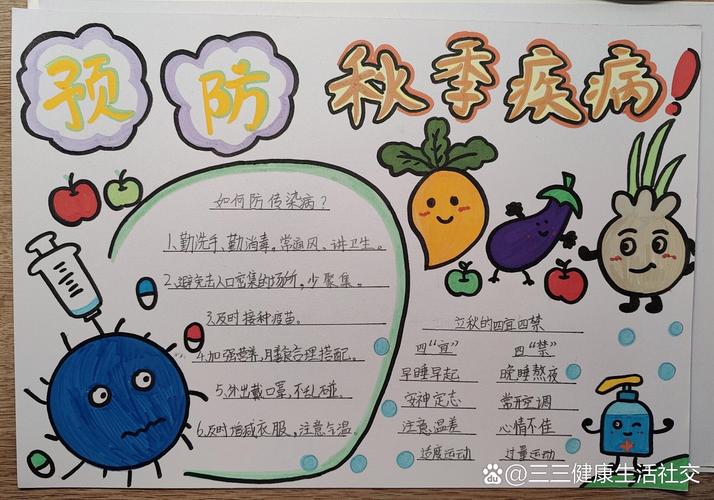 预防秋季疾病!
如何防传染病?
1、勤洗手、勤消毒。常通风、讲卫生。
2、避免去人口密集的场所,少聚集。
3、及时接种疫苗。
4、加强营养,膳食合理搭配。
5、外出戴口罩,不乱碰。
6、及时增减衣服,注意气温。
立秋的四宜四禁
四“宜” 四“禁”
早睡早起 晚睡熬夜
安神定志 常开空调
注意温差 心情不佳
适度运动 过量运动
@三三健康生活社交